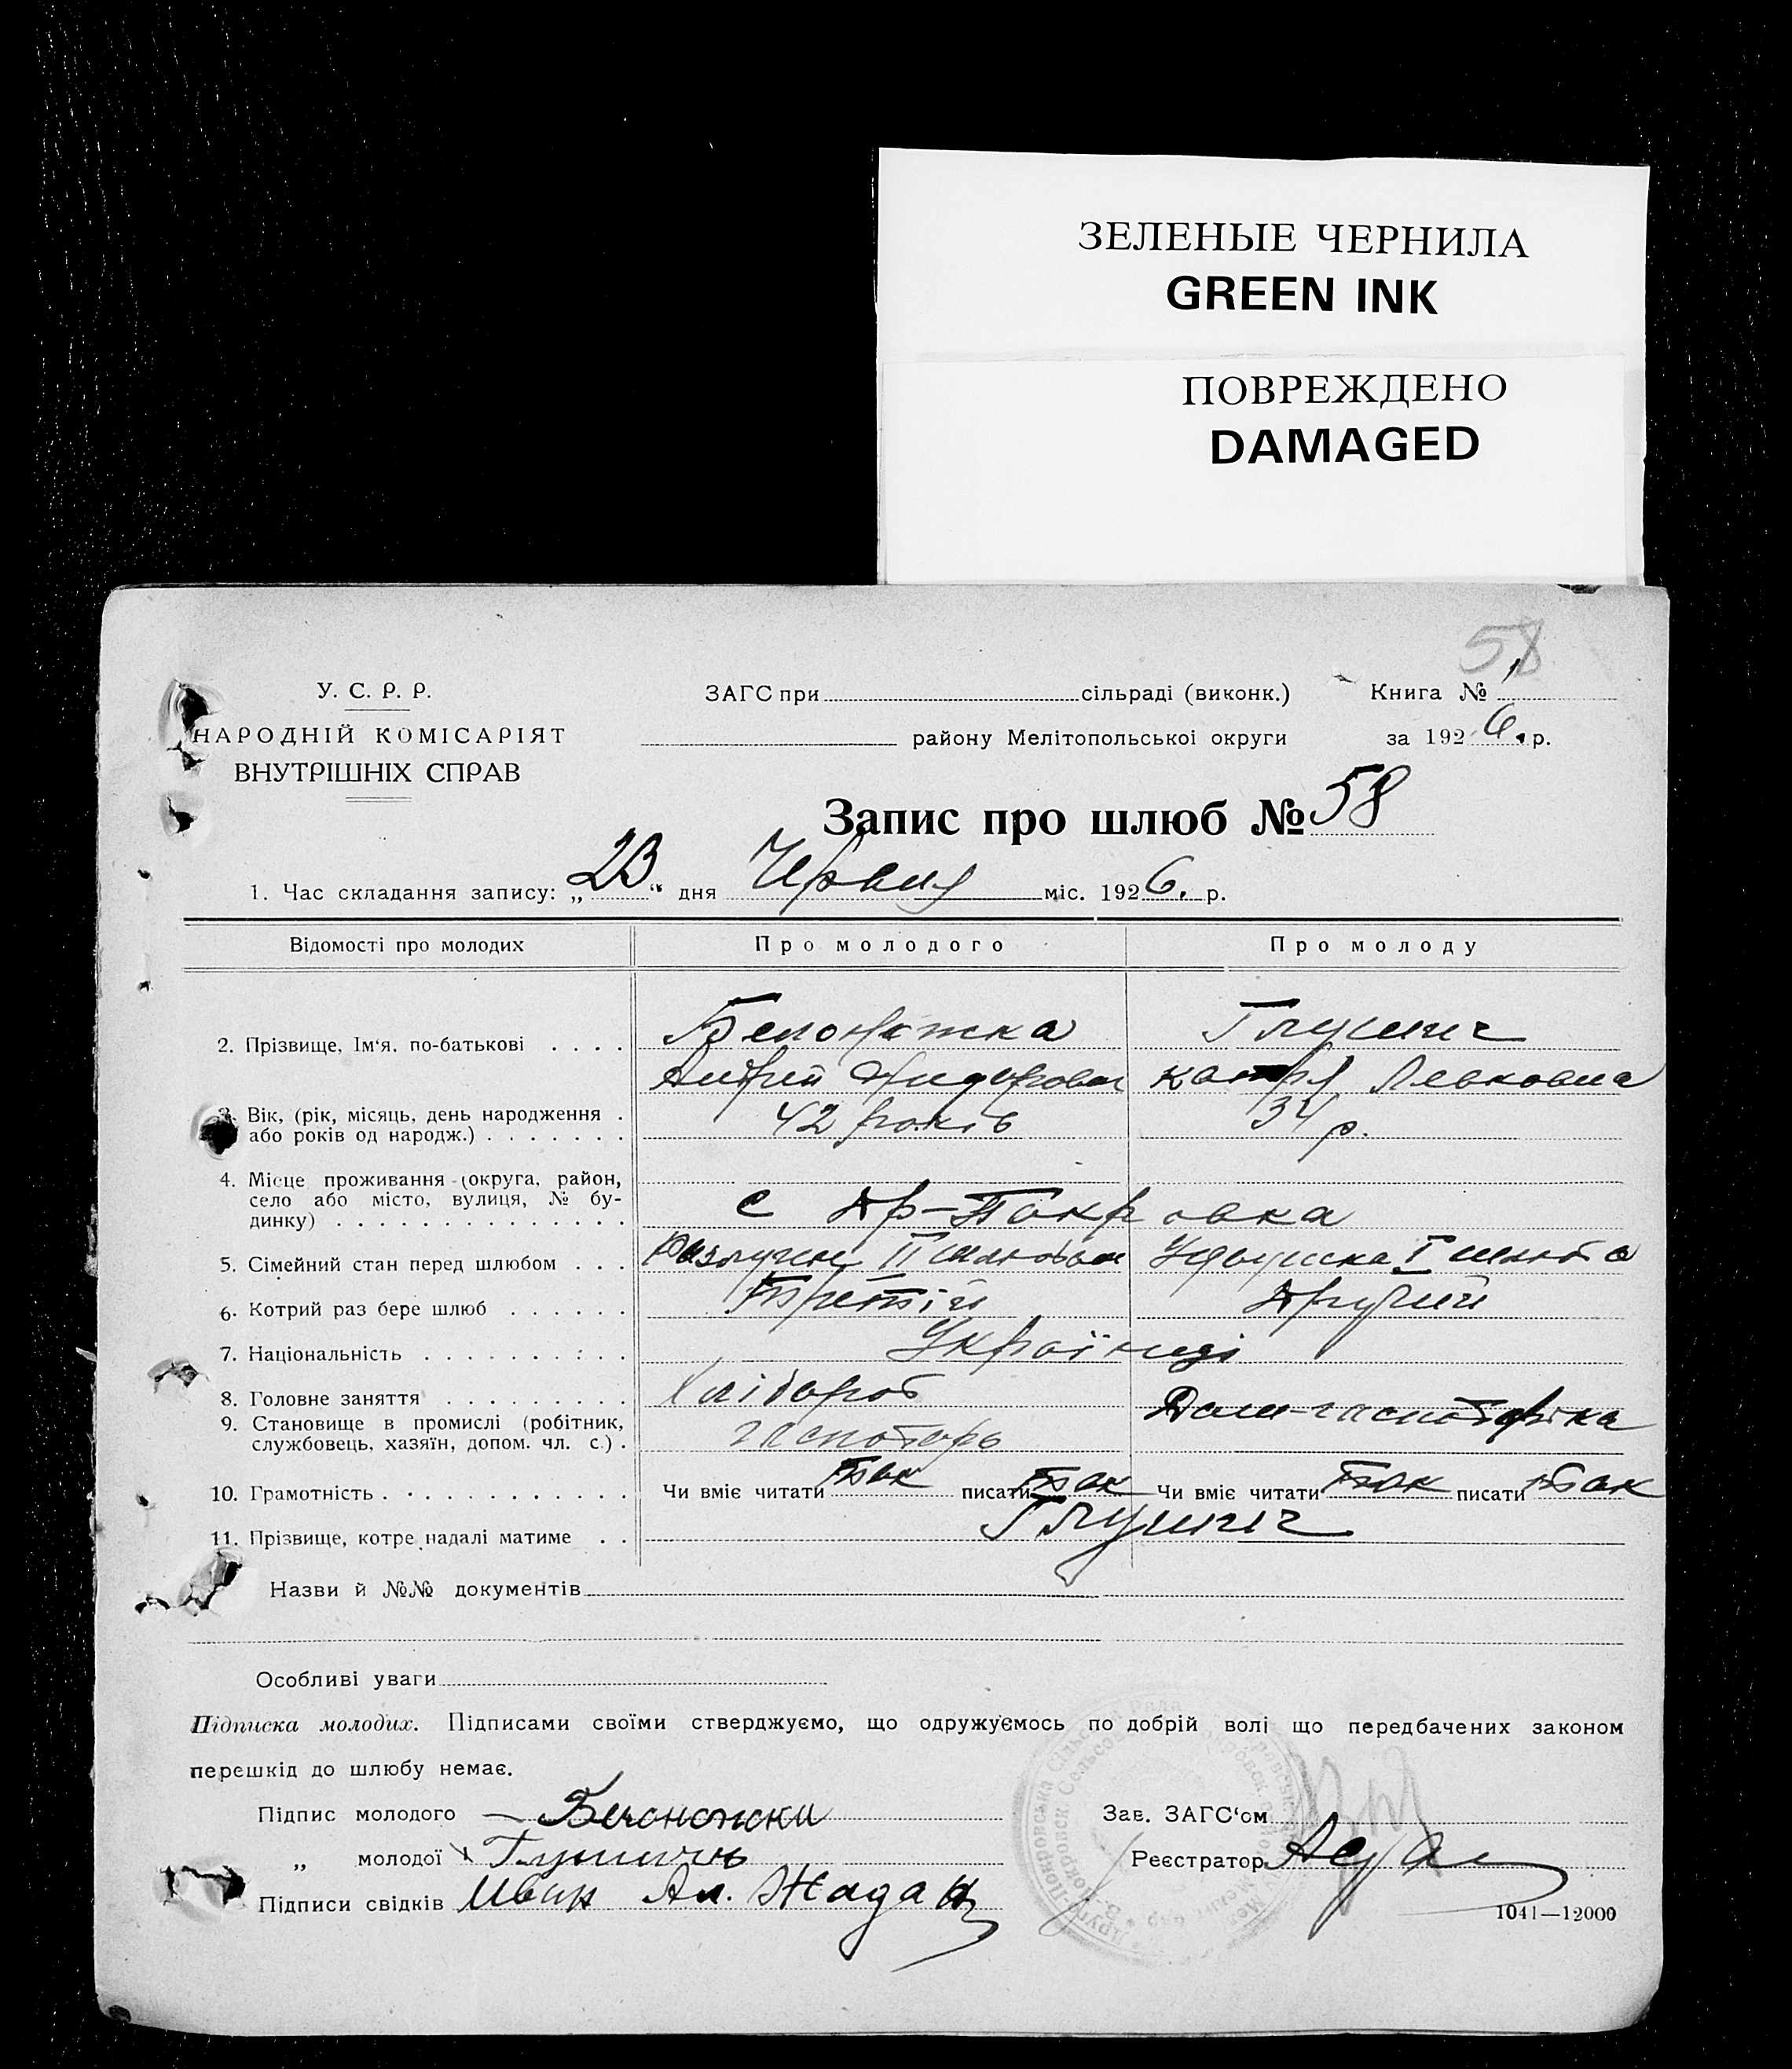 ЗЕЛЕНЫЕ ЧЕРНИЛА
GREEN INK
ПОВРЕЖДЕНО
DAMAGED
58
У. С. Р. Р.
НАРОДНІЙ КОМІСАРІЯТ
ВНУТРІШНІХ СПРАВ
ЗАГС при сільраді (виконк.) Книга № 1
району Мелітопольської округи за 1926. р.
Запис про шлюб № 58
1. Час складання запису: „23“ дня Червня міс. 1926. р.
Відомості про молодих Про молодого Про молоду
2. Прізвище, Ім'я, по-батькові Білоножка Глушич
Андрій Катря Левковна
3. Вік, (рік, місяць, день народження 42 років 34 р.
або років од народж.)
4. Місце проживання (округа, район,
село або місто, вулиця, № бу-
динку) с Др-Покровка
5. Сімейний стан перед шлюбом
6. Котрий раз бере шлюб Третій Другий
7. Національність Українці
8. Головне заняття Хлібороб Дом-господарка
9. Становище в промислі (робітник,
службовець, хазяїн, допом. чл. с.) господарь
10. Грамотність Чи вміє читати так писати так Чи вміє читати так писати так
11. Прізвище, котре надалі матиме Глушич
Назви й №№ документів
Особливі уваги
Підписка молодих. Підписами своїми стверджуємо, що одружуємось по добрій волі що передбачених законом
перешкід до шлюбу немає.
Підпис молодого Зав. ЗАГС'ом
„ молодої Глушичь Реєстратор
Підписи свідків Иван Ал. Жадан
1041—12000